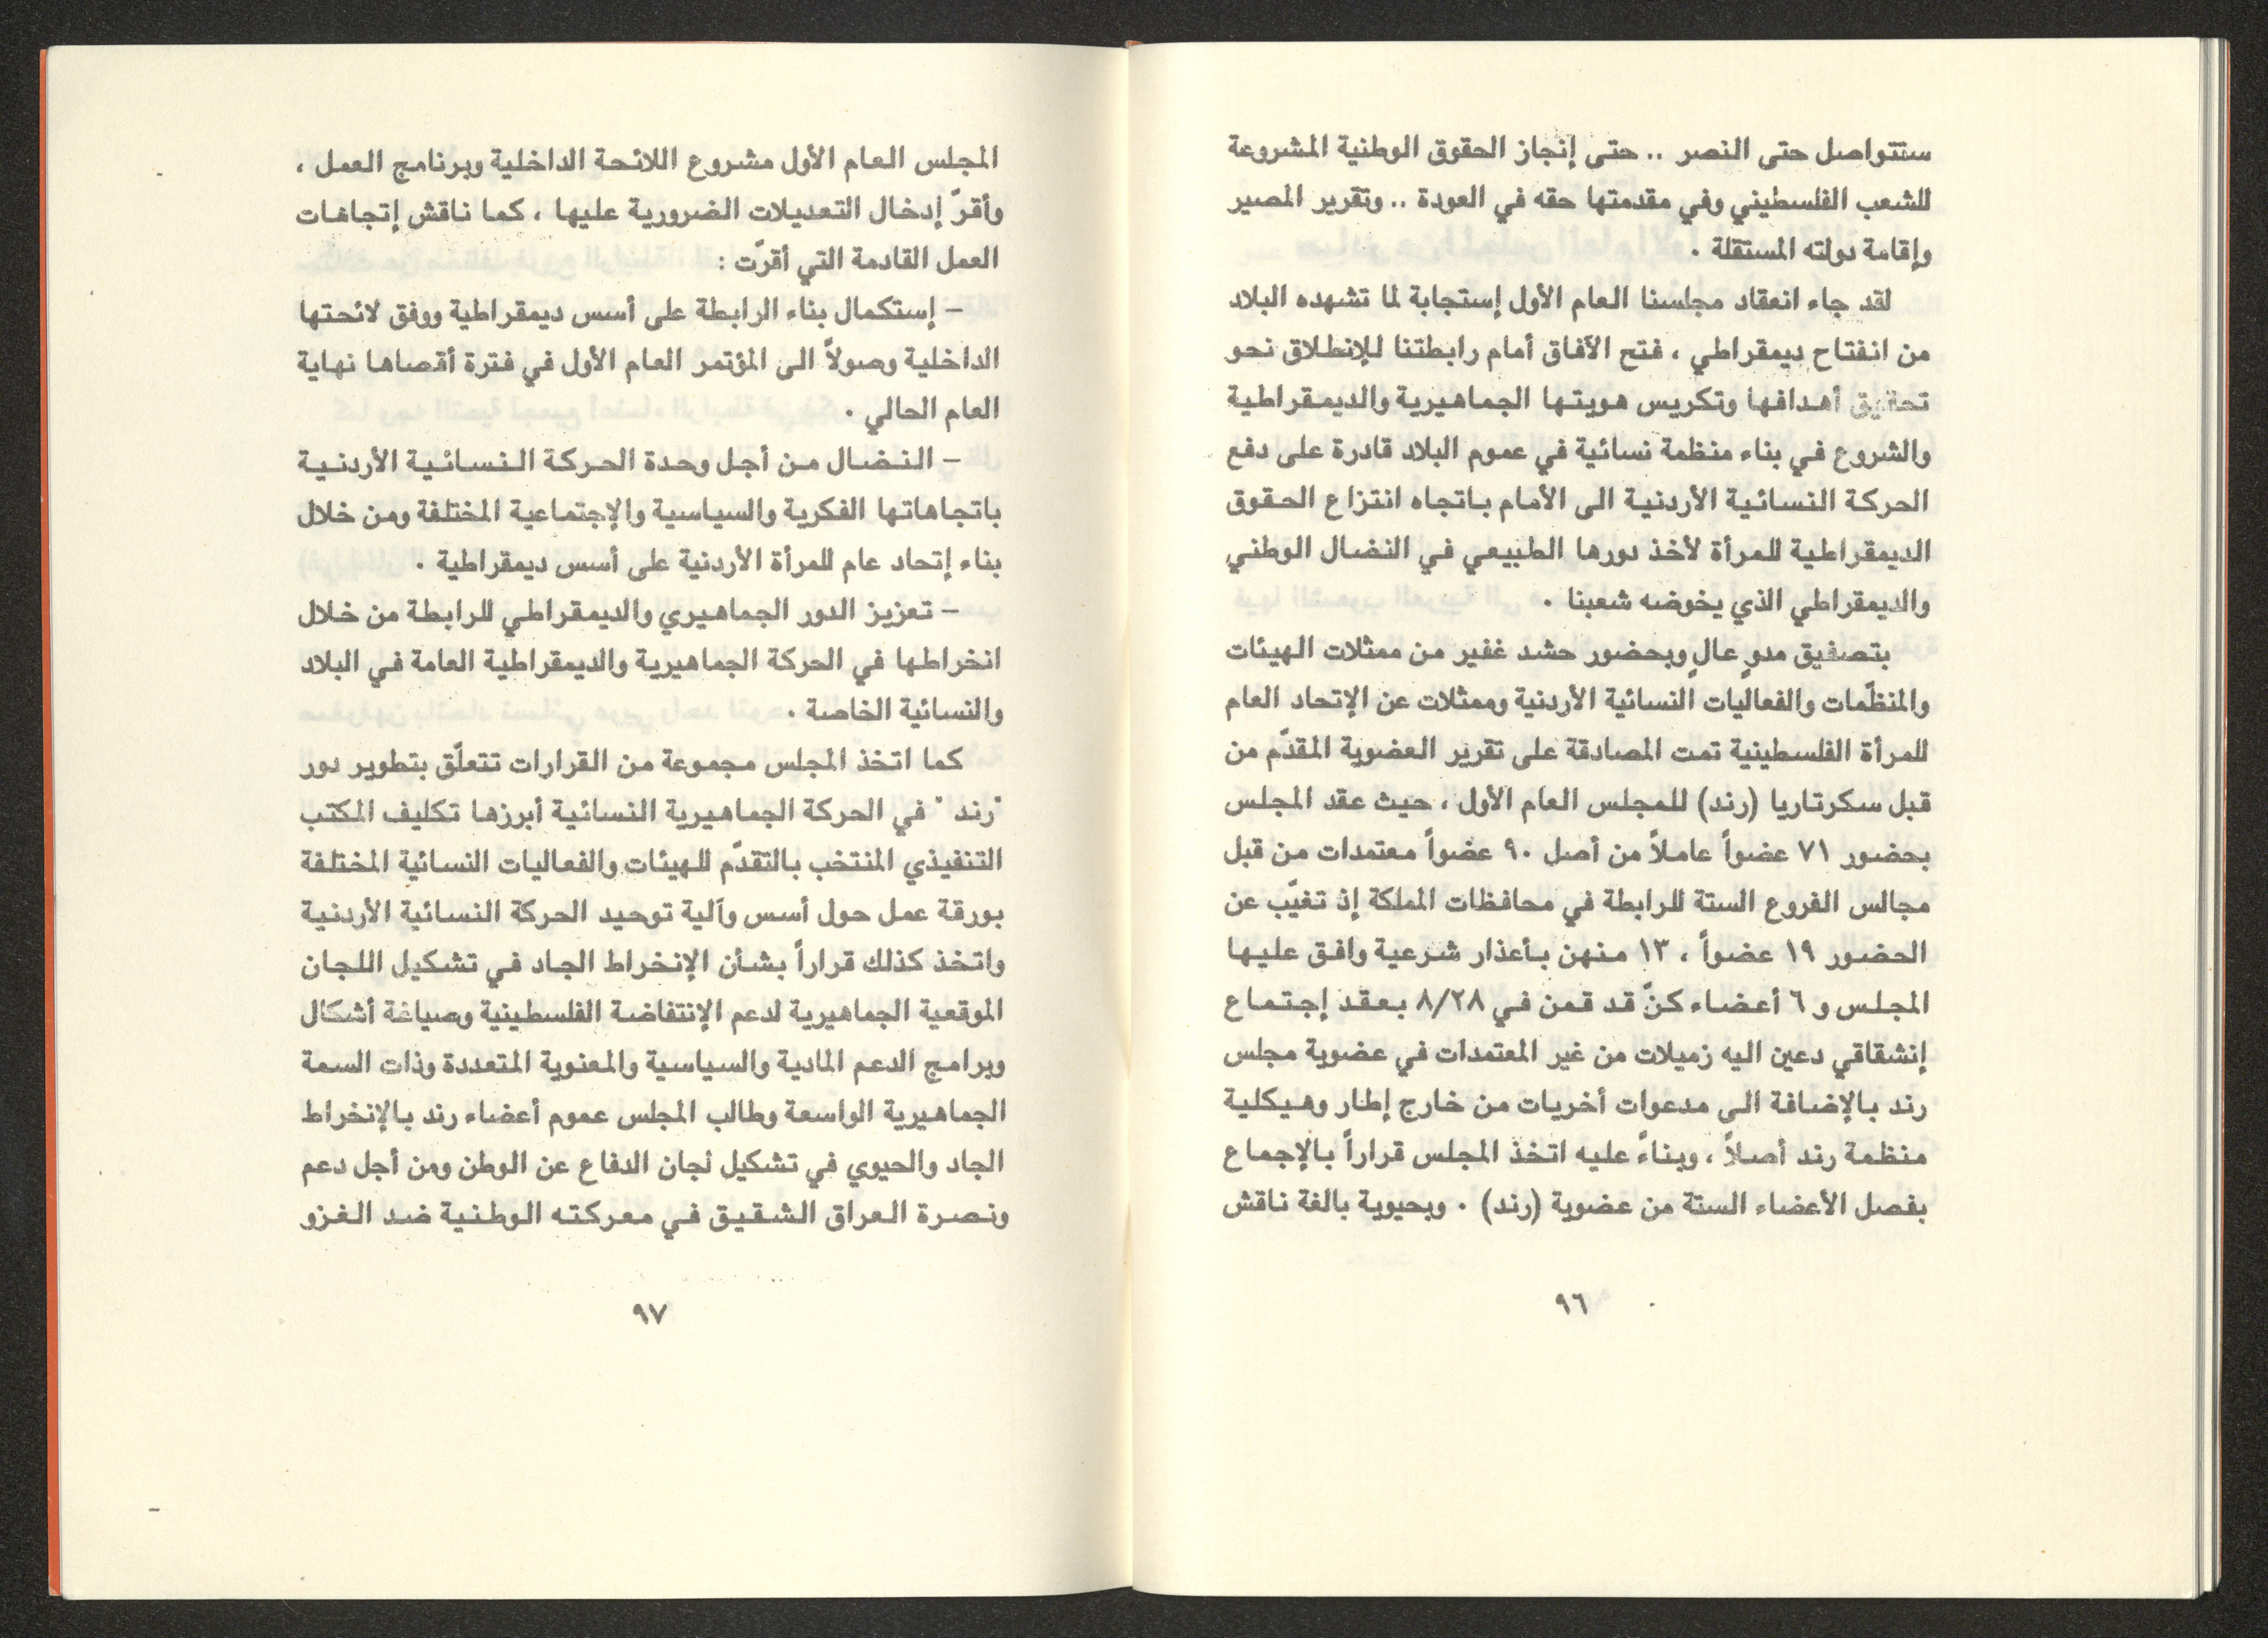 ستتواصل حتى النصر .. حتى إنجاز الحقوق الوطنية المشروعة
للشعب الفلسطيني وفي مقدمتها حقه في العودة .. وتقرير المصير
وإقامة دولته المستقلة .
لقد جاء انعقاد مجلسنا العام الأول إستجابة لما تشهده البلاد
من انفتاح ديمقراطي ، فتح الآفاق أمام رابطتنا للإنطلاق نحو
تحقيق أهدافها وتكريس هويتها الجماهيرية والديمقراطية
والشروع في بناء منظمة نسائية في عموم البلاد قادرة على دفع
الحركة النسائية الأردنية الى الأمام باتجاه انتزاع الحقوق
الديمقراطية للمرأة لأخذ دورها الطبيعي في النضال الوطني
والديمقراطي الذي يخوضه شعبنا .
بتصفيق مدوٍ عالٍ وبحضور حشد غفير من ممثلات الهيئات
والمنظّمات والفعاليات النسائية الأردنية وممثلات عن الإتحاد العام
للمرأة الفلسطينية تمت المصادقة على تقرير العضوية المقدّم من
قبل سكرتاريا (رند) للمجلس العام الأول ، حيث عقد المجلس
بحضور ٧١ عضواً عاملاً من أصل ٩٠ عضواً معتمدات من قبل
مجالس الفروع الستة للرابطة في محافظات المملكة إذ تغيّب عن
الحضور ١٩ عضواً ، ١٣ منهن بأعذار شرعية وافق عليها
المجلس و ٦ أعضاء كنّ قد قمن في ٨/٢٨ بعقد إجتماع
إنشقاقي دعين اليه زميلات من غير المعتمدات في عضوية مجلس
رند بالإضافة الى مدعوات أخريات من خارج إطار وهيكلية
منظمة رند أصلاً ، وبناءً عليه اتخذ المجلس قراراً بالإجماع
بفصل الأعضاء الستة من عضوية (رند) . وبحيوية بالغة ناقش
٩٦
المجلس العام الأول مشروع اللائحة الداخلية وبرنامج العمل ،
وأقرّ إدخال التعديلات الضرورية عليها ، كما ناقش إتجاهات
العمل القادمة التي أقرّت :
– إستكمال بناء الرابطة على أسس ديمقراطية ووفق لائحتها
الداخلية وصولاً الى المؤتمر العام الأول في فترة أقصاها نهاية
العام الحالي .
– النضال من أجل وحدة الحركة النسائية الأردنية
باتجاهاتها الفكرية والسياسية والإجتماعية المختلفة ومن خلال
بناء إتحاد عام للمرأة الأردنية على أسس ديمقراطية .
– تعزيز الدور الجماهيري والديمقراطي للرابطة من خلال
انخراطها في الحركة الجماهيرية والديمقراطية العامة في البلاد
والنسائية الخاصة .
كما اتخذ المجلس مجموعة من القرارات تتعلّق بتطوير دور
"رند" في الحركة الجماهيرية النسائية أبرزها تكليف المكتب
التنفيذي المنتخب بالتقدّم للهيئات والفعاليات النسائية المختلفة
بورقة عمل حول أسس وآلية توحيد الحركة النسائية الأردنية
واتخذ كذلك قراراً بشأن الإنخراط الجاد في تشكيل اللجان
الموقعية الجماهيرية لدعم الإنتفاضة الفلسطينية وصياغة أشكال
وبرامج الدعم المادية والسياسية والمعنوية المتعددة وذات السمة
الجماهيرية الواسعة وطالب المجلس عموم أعضاء رند بالإنخراط
الجاد والحيوي في تشكيل لجان الدفاع عن الوطن ومن أجل دعم
ونصرة العراق الشقيق في معركته الوطنية ضد الغزو
٩٧